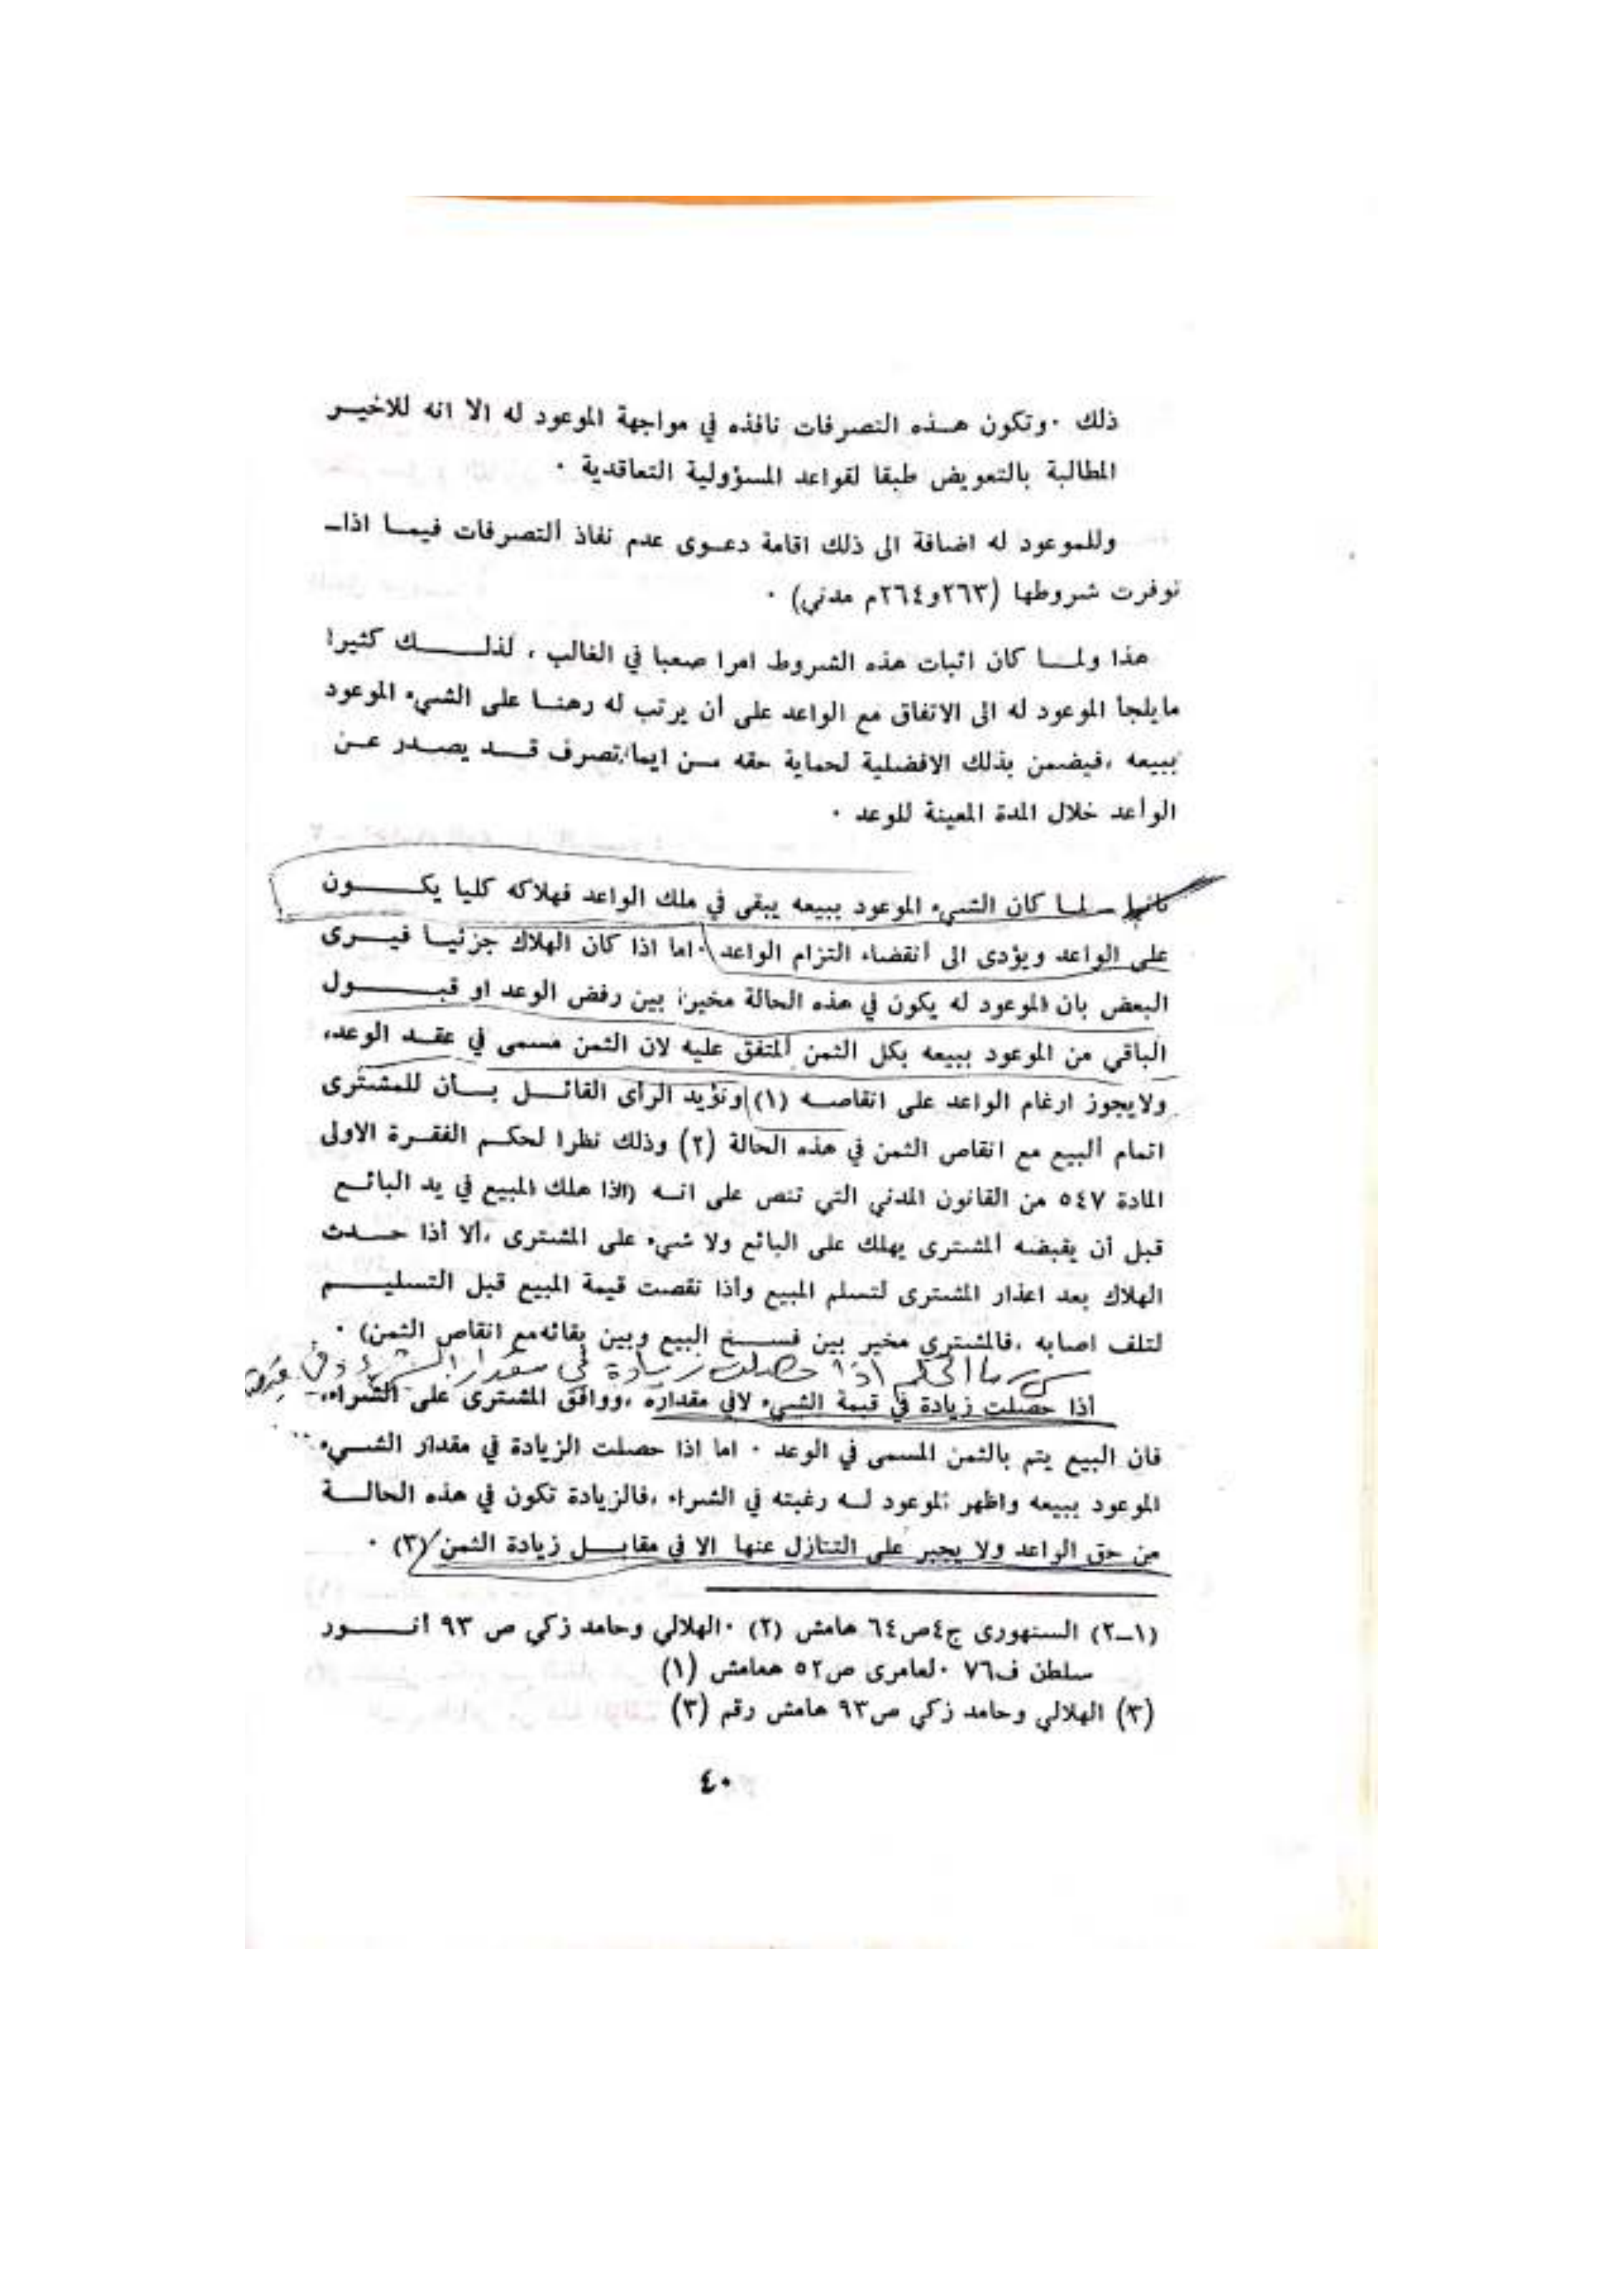 ذلك ٠وتكون هـــذه التصرفات نافذه في مواجهة الموعود له الا انه للاخيـــر
المطالبة بالتعويض طبقا لقواعد المسؤولية التعاقدية ٠
وللموعود له اضافة الى ذلك اقامة دعــوى عدم نفاذ ألتصرفات فيمـــا اذاــ
توفرت شروطها (٢٦٣و٢٦٤م مدني) ٠
هذا ولمــا كان اثبات هذه الشروط امرا صعبا في الغالب ، لذلـــــك كثيرا
مايلجأ الموعود له الى الاتفاق مع الواعد على أن يرتب له رهنـا على الشيء الموعود
ببيعه ،فيضمن بذلك الافضلية لحماية حقه مــن ايما تصرف قـــد يصـدر عــن
الواعد خلال المدة المعينة للوعد ٠
ثانيا ــ لمـا كان الشيء الموعود ببيعه يبقى في ملك الواعد فهلاكه كليا يكـــــون
على الواعد ويؤدى الى أنقضاء التزام الواعد ٠اما اذا كان الهلاك جزئيــا فيــرى
البعض بان الموعود له يكون في هذه الحالة مخيرا بين رفض الوعد او قبـــــول
الباقي من الموعود ببيعه بكل الثمن ألمتفق عليه لان الثمن مسمى في عقـد الوعد،
ولايجوز ارغام الواعد على انقاصـــه (١) ونؤيد الرأى القائــل بــأن للمشترى
اتمام ألبيع مع انقاص الثمن في هذه الحالة (٢) وذلك نظرا لحكـم الفقـرة الاولى
المادة ٥٤٧ من القانون المدني التي تنص على انــه (اذا هلك المبيع في يد البائــع
قبل أن يقبضه ألمشترى يهلك على البائع ولا شيء على المشترى ،ألا أذا حـــدث
الهلاك بعد اعذار المشترى لتسلم المبيع وأذا نقصت قيمة المبيع قبل التسليـــم
لتلف اصابه ،فالمشتري مخير بين فســـخ البيع وبين بقائه مع انقاص الثمن) ٠
س/ ما الحكم اذا حصلت زيادة في مقدار الشيء وفي قيمته
أذا حصلت زيادة في قيمة الشيء لافي مقداره ،ووافق المشترى على الشراء،
فان البيع يتم بالثمن المسمى في الوعد ٠ اما اذا حصلت الزيادة في مقدار الشــيء
الموعود ببيعه واظهر الموعود لــه رغبته في الشراء ،فالزيادة تكون في هذه الحالـــة
من حق الواعد ولا يجبر على التنازل عنها الا في مقابــل زيادة الثمن (٣) ٠
(١ــ٢) السنهورى ج٤ص٦٤ هامش (٢) ٠الهلالي وحامد زكي ص ٩٣ أنــــور
سلطن ف٧٦ ٠لعامرى ص٥٢ همامش (١)
(٣) الهلالي وحامد زكي ص٩٣ هامش رقم (٣)
٤٠